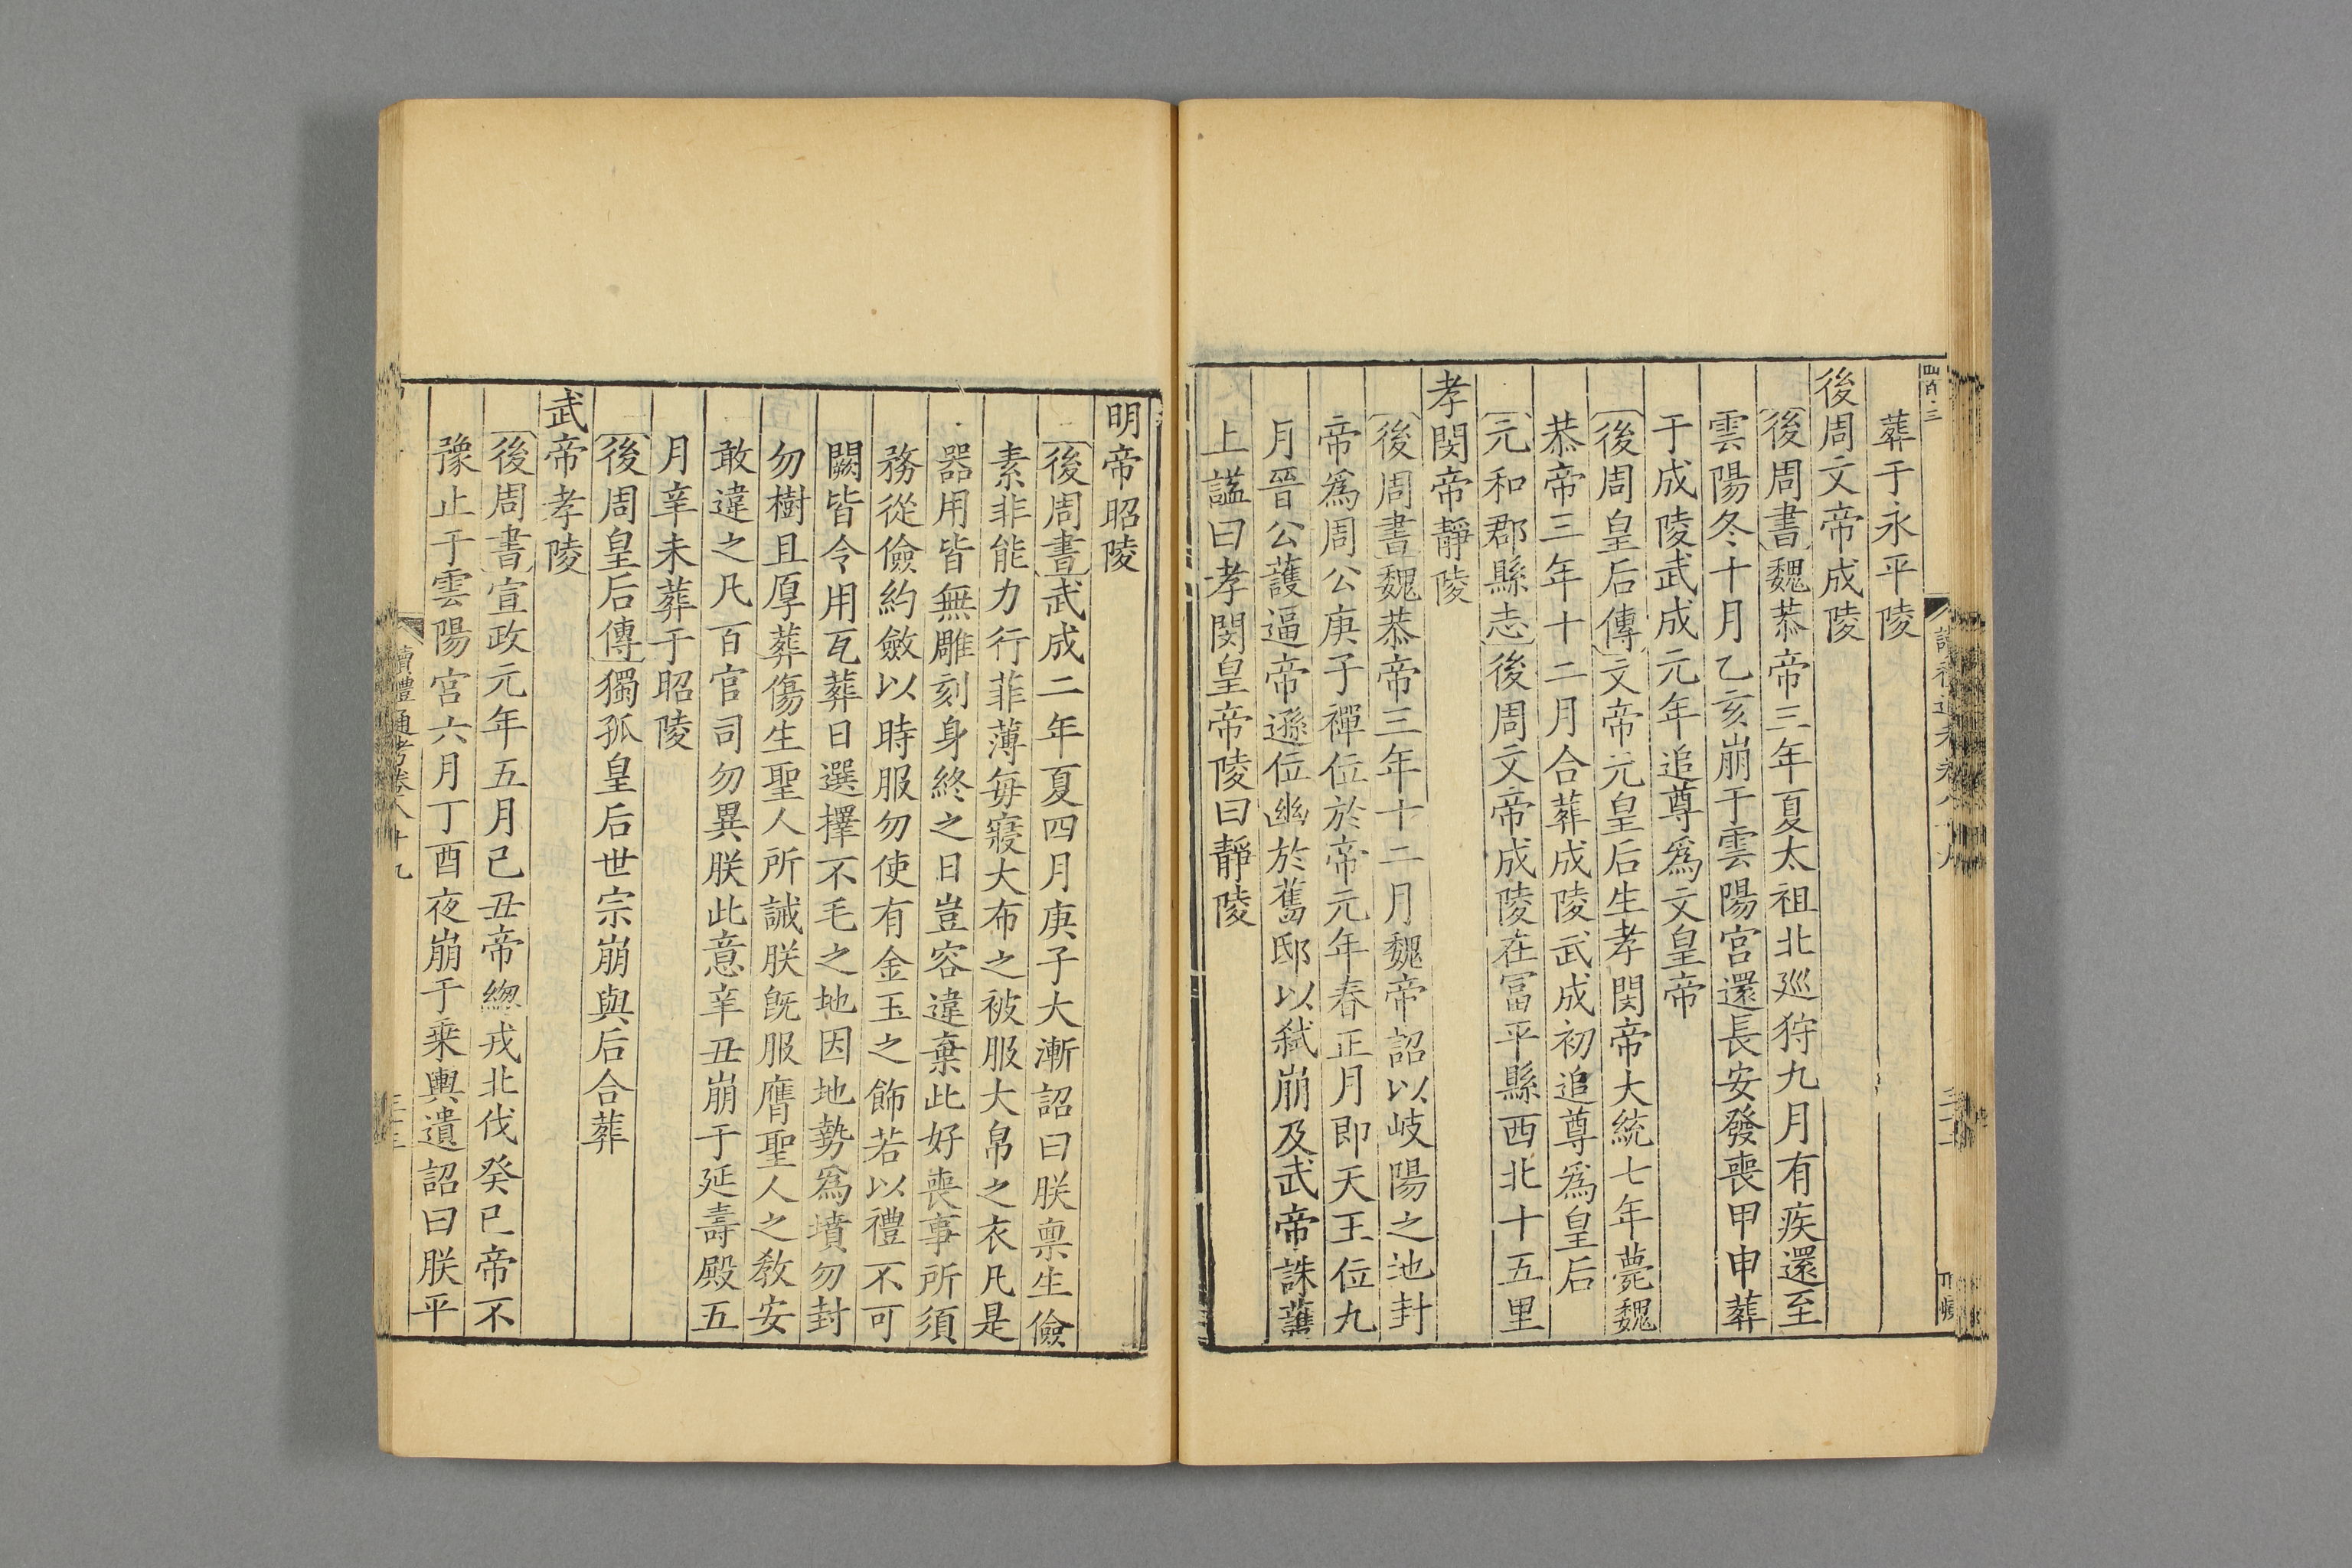 葬于永平陵
後周文帝成陵
後周書魏恭帝三年夏太祖北廵狩九月有疾還至
雲陽冬十月乙亥崩于雲陽宮還長安發喪甲申葬
于成陵武成元年追尊爲文皇帝
後周皇后傳文帝元皇后生孝閔帝大統七年薨魏
恭帝三年十二月合葬成陵武成初追尊爲皇后
元和郡縣志後周文帝成陵在冨平縣西北十五里
孝閔帝靜陵
後周書魏恭帝三年十二月魏帝詔以岐陽之地封
帝爲周公庚子禪位於帝元年春正月即天王位九
月晉公護逼帝遜位幽於舊邸以弑崩及武帝誅護
上謚曰孝閔皇帝陵曰靜陵
明帝昭陵
後周書武成二年夏四月庚子大漸詔曰朕稟生儉
素非能力行菲薄每寢大布之被服大帛之衣凡是
器用皆無雕刻身終之日豈容違棄此好喪事所須
務從儉約斂以時服勿使有金玉之飾若以禮不可
闕皆令用瓦葬日選擇不毛之地因地勢爲墳勿封
勿樹且厚葬傷生聖人所誡朕旣服膺聖人之敎安
敢違之凡百官司勿異朕此意辛丑崩于延壽殿五
月辛未葬于昭陵
後周皇后傳獨孤皇后世宗崩與后合葬
武帝孝陵
後周書宣政元年五月己丑帝緫戎北伐癸巳帝不
豫止于雲陽宮六月丁酉夜崩于乗輿遺詔曰朕平
讀禮通考卷八十九